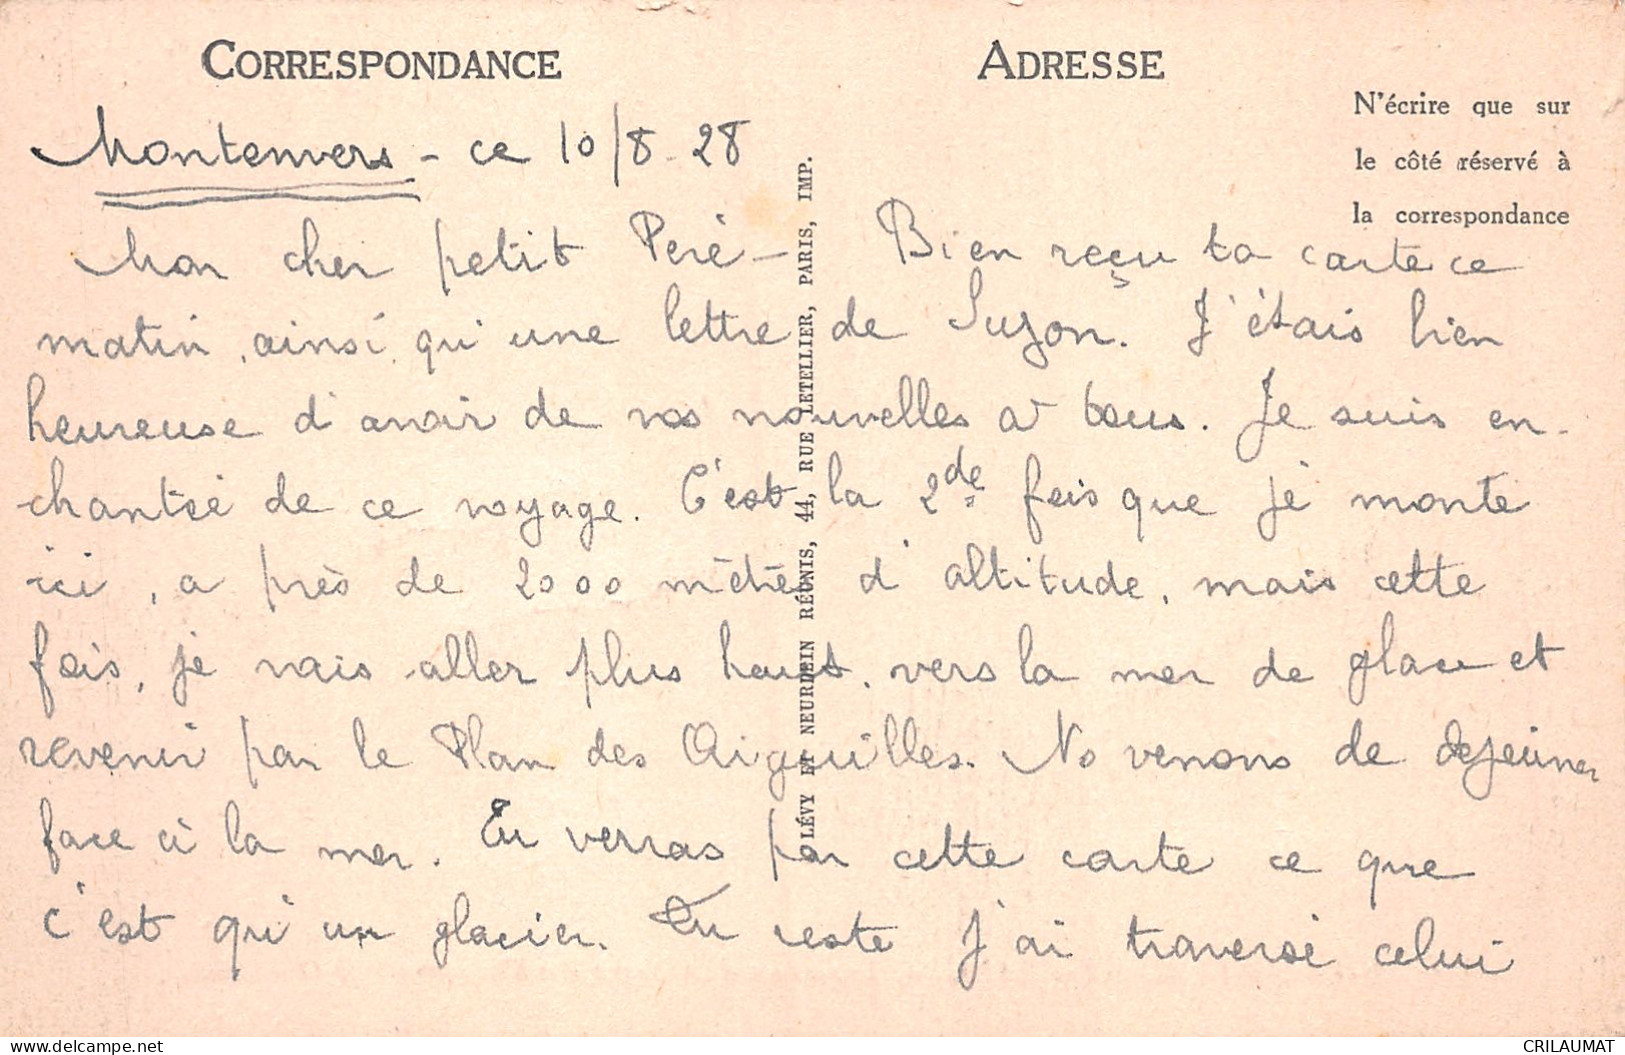 CORRESPONDANCE
ADRESSE
N'écrire que sur
le côté réservé à
la correspondance
Montenvers - ce 10/8-28
Mon cher petit Peré - Bien reçu ta carte ce
matin, ainsi qu'une lettre de Suzon. J'étais bien
heureuse d'avoir de vos nouvelles à tous. Je suis en-
chantée de ce voyage. C'est la 2de fois que je monte
ici, à près de 2000 mètres d'altitude, mais cette
fois, je vais aller plus haut, vers la mer de glace et
revenir par le Plan des Aiguilles. Ns venons de dejeuner
face à la mer. Tu verras par cette carte ce que
c'est qu'un glacier. Du reste j'ai traversé celui
LÉVY ET NEURDEIN RÉUNIS, 44, RUE LETELLIER, PARIS, IMP.
delcampe.net
CRILAUMAT